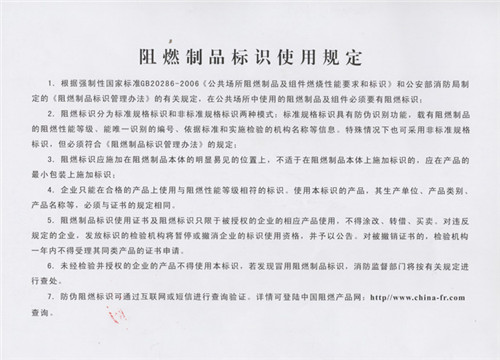 阻燃制品标识使用规定
1．根据强制性国家标准GB20286-2006《公共场所阻燃制品及组件燃烧性能要求和标识》和公安部消防局制
定的《阻燃制品标识管理办法》的有关规定，在公共场所中使用的阻燃制品及组件必须要有阻燃标识；
2．阻燃标识分为标准规格标识和非标准规格标识两种模式；标准规格标识具有防伪识别功能，载有阻燃制品
的燃烧性能等级、能唯一识别的编号、依据标准和实施检验的机构名称等信息。特殊情况下也可采用非标准规格
标识，但必须符合《阻燃制品标识管理办法》的规定；
3．阻燃标识应施加在阻燃制品本体的明显易见的位置上，不适于在阻燃制品本体上施加标识的，应在产品的
最小包装上施加标识；
4．企业只能在合格的产品上使用与燃烧性能等级相符的标识。使用本标识的产品，其生产单位、产品类别、
产品名称等，必须与证书的规定相同。
5．阻燃制品标识使用证书及阻燃标识只限于被授权的企业的相应产品使用，不得涂改、转借、买卖。对违反
规定的企业，发放标识的检验机构将暂停或撤消企业的标识使用资格，并予以公告。对被撤销证书的，检验机构
一年内不得受理其同类产品的证书申请。
6．未经检验并授权的企业的产品不得使用本标识，若发现冒用阻燃制品标识，消防监督部门将按有关规定进
行查处。
7．防伪阻燃标识可通过互联网或短信进行查询验证。详情可登陆中国阻燃产品网：http//www.china-fr.com
查询。